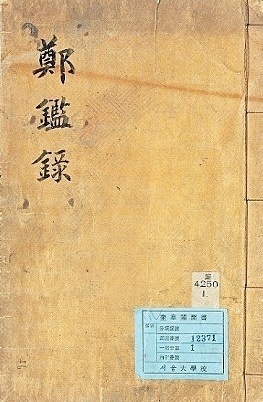 鄭鑑錄
4250
1
奎章閣圖書
12371
1
서울大學校